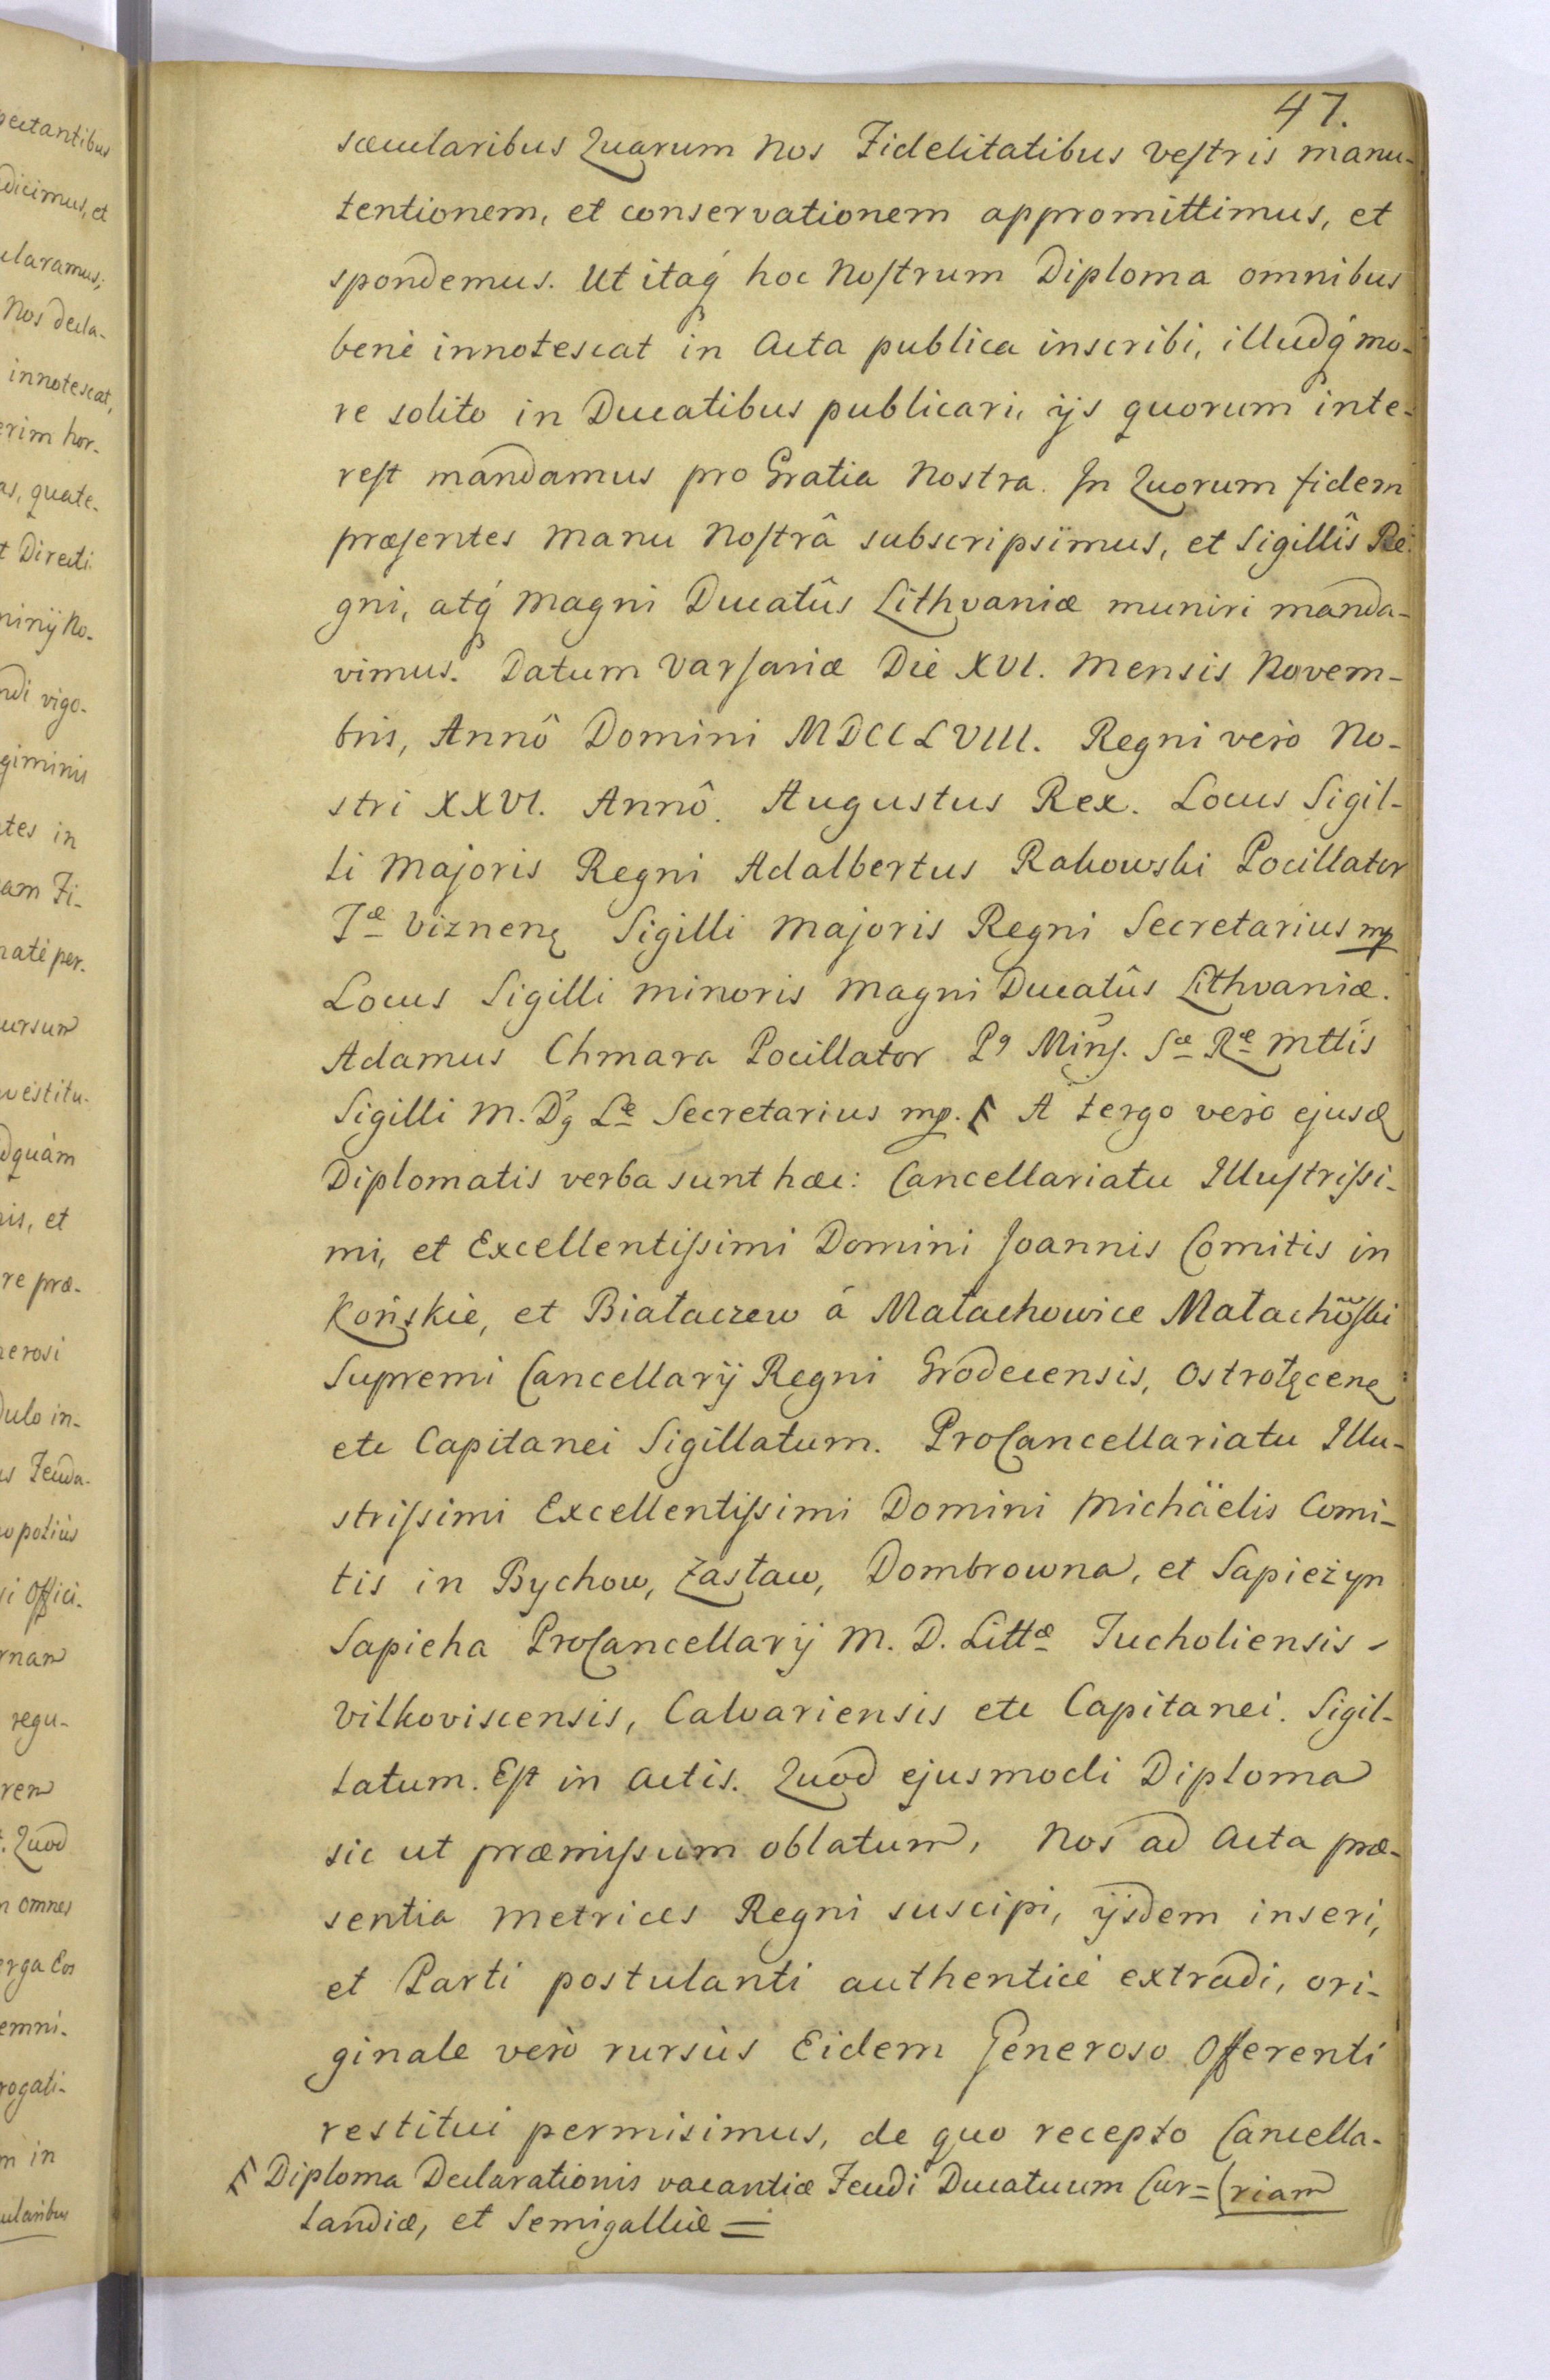 47.
sæcularibus Quarum Nos Fidelitatibus vestris manu-
tentionem, et conservationem appromittimus, et
spondemus. Ut itaq́ hoc Nostrum Diploma omnibus
benè innotescat in Acta publica inscribi, illudq́ mo-
re solito in Ducatibus publicari, ijs quorum inte-
rest mandamus pro Gratia Nostra. In Quorum fidem
præsentes Manu Nostrâ subscripsimus, et Sigillîs Re-
gni, atq́ Magni Ducatûs Lithvaniæ muniri manda-
vimus. Datum Varsaviæ Die XVI. Mensis Novem-
bris, Annô Domini MDCCLVIII. Regni verò No-
stri XXVI. Annô. Augustus Rex. Locus Sigil-
li Majoris Regni Adalbertus Rakowski Pocillator
Tæ Viznenς Sigilli Majoris Regni Secretarius mp
Locus Sigilli minoris Magni Ducatûs Lithvaniæ.
Adamus Chmara Pocillator P9 Mins. Sæ Ræ Mttis
Sigilli M. Dg Læ Secretarius mp. F A tergo verò ejusd
Diplomatis verba sunt hæc: Cancellariatu Illustrissi-
mi, et Excellentissimi Domini Joannis Comitis in
Końskie, et Białaczew á Małachowice Małachowski
Supremi Cancellarij Regni Grodecensis, Ostrołęcenς
etc Capitanei Sigillatum. ProCancellariatu Illu-
strissimi Excellentissimi Domini Michäelis Comi-
tis in Bychow, Zasław, Dombrowna, et Sapieżyn
Sapieha ProCancellarij M. D. Littæ Tucholiensis
Vilkoviscensis, Calvariensis etc Capitanei. Sigil-
latum. Est in Actis. Quod ejusmodi Diploma
sic ut præmissum oblatum, Nos ad Acta præ-
sentia Metrices Regni suscipi, ijsdem inseri,
et Parti postulanti authenticè extradi, ori-
ginale verò rursùs Eidem Generoso Offerenti
restitui permisimus, de quo recepto Cancella-
riam
F Diploma Declarationis vacantiæ Feudi Ducatuum Cur=
landiæ, et Semigalliæ =
pectantibus
dicimus, et
claramus;
Nos decla-
innotescat,
erim hor-
as, quate-
t Directi
minij No-
ndi vigo-
giminis
tes in
am Fi-
natè per-
ursum
vestitu-
dquàm
nis, et
re præ-
nerosi
dulo in-
us Feuda-
potiùs
i Offici-
rnam
regu-
rem
. Quod
n omnes
erga Eos
emni-
rogati-
m in
ularibus